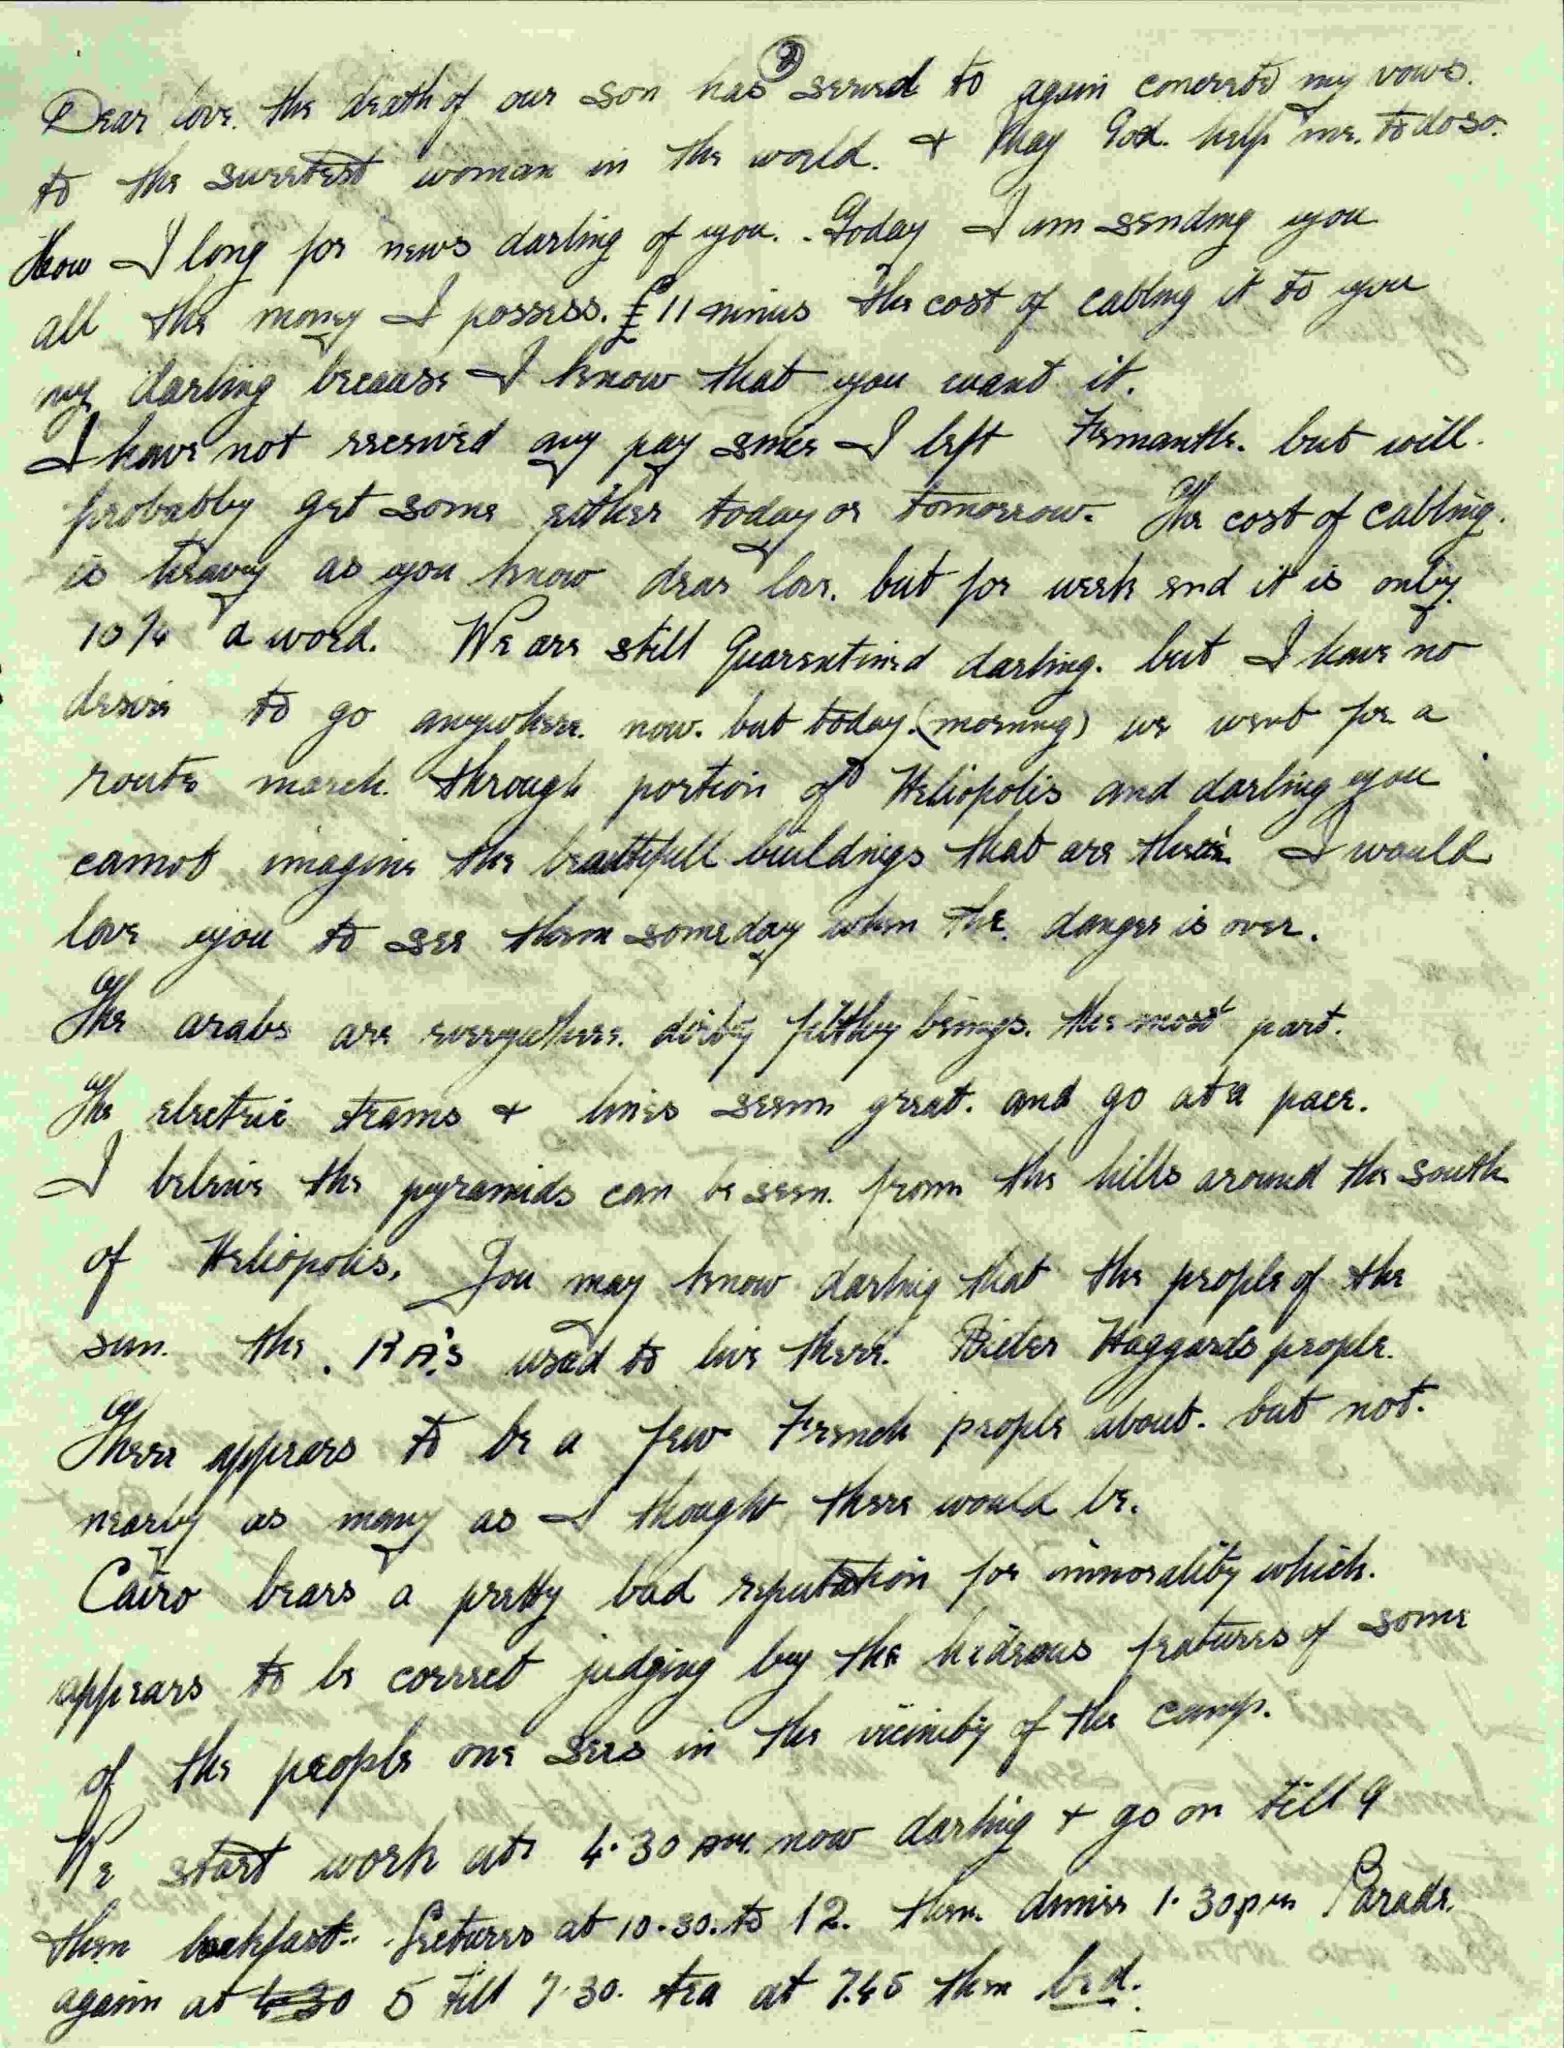 2
Dear love. the death of our son has served to again concrete my vows.
to the sweetest woman in the world. + May God. help me. to do so.
How I long for news darling of you. - Today I am sending you
all the money I possess. £11 minus the cost of cabling it to you
my darling because I know that you want it.
I have not received any pay since I left Fremantle. but will
probably get some either today or tomorrow. The cost of cabling.
is heavy as you know dear love. but for week end it is only
a word. We are still Quarentined darling. but I have no
desire to go anywhere. now. but today. (morning) we went for a
route march. through portion of Heliopolis and darling you
cannot imagine the beautifull buildings that are there. I would
love you to see them someday when the. danger is over.
The arabs are everywhere. dirty filthy beings. the most part.
The electric trams + lines seem great. and go at a pace.
I beleive the pyramids can be seen. from the hills around the south
of Heliopolis. You may know darling that the people of the
sun. the. RA's used to live there. Rider Haggards people.
There appears to be a few French people about. but not.
nearly as many as I thought there would be.
Cairo bears a pretty bad reputation for immorality which.
appears to be correct judging by the hideous features of some
of the people one sees in the vicinity of the camp.
We start work at 4.30 AM. now darling + go on till 9
then breakfast. Lectures at 10.30. to 12. then. dinner 1.30 pm Parade.
again at 4.30 5 till 7.30. tea at 7.45 then bed.